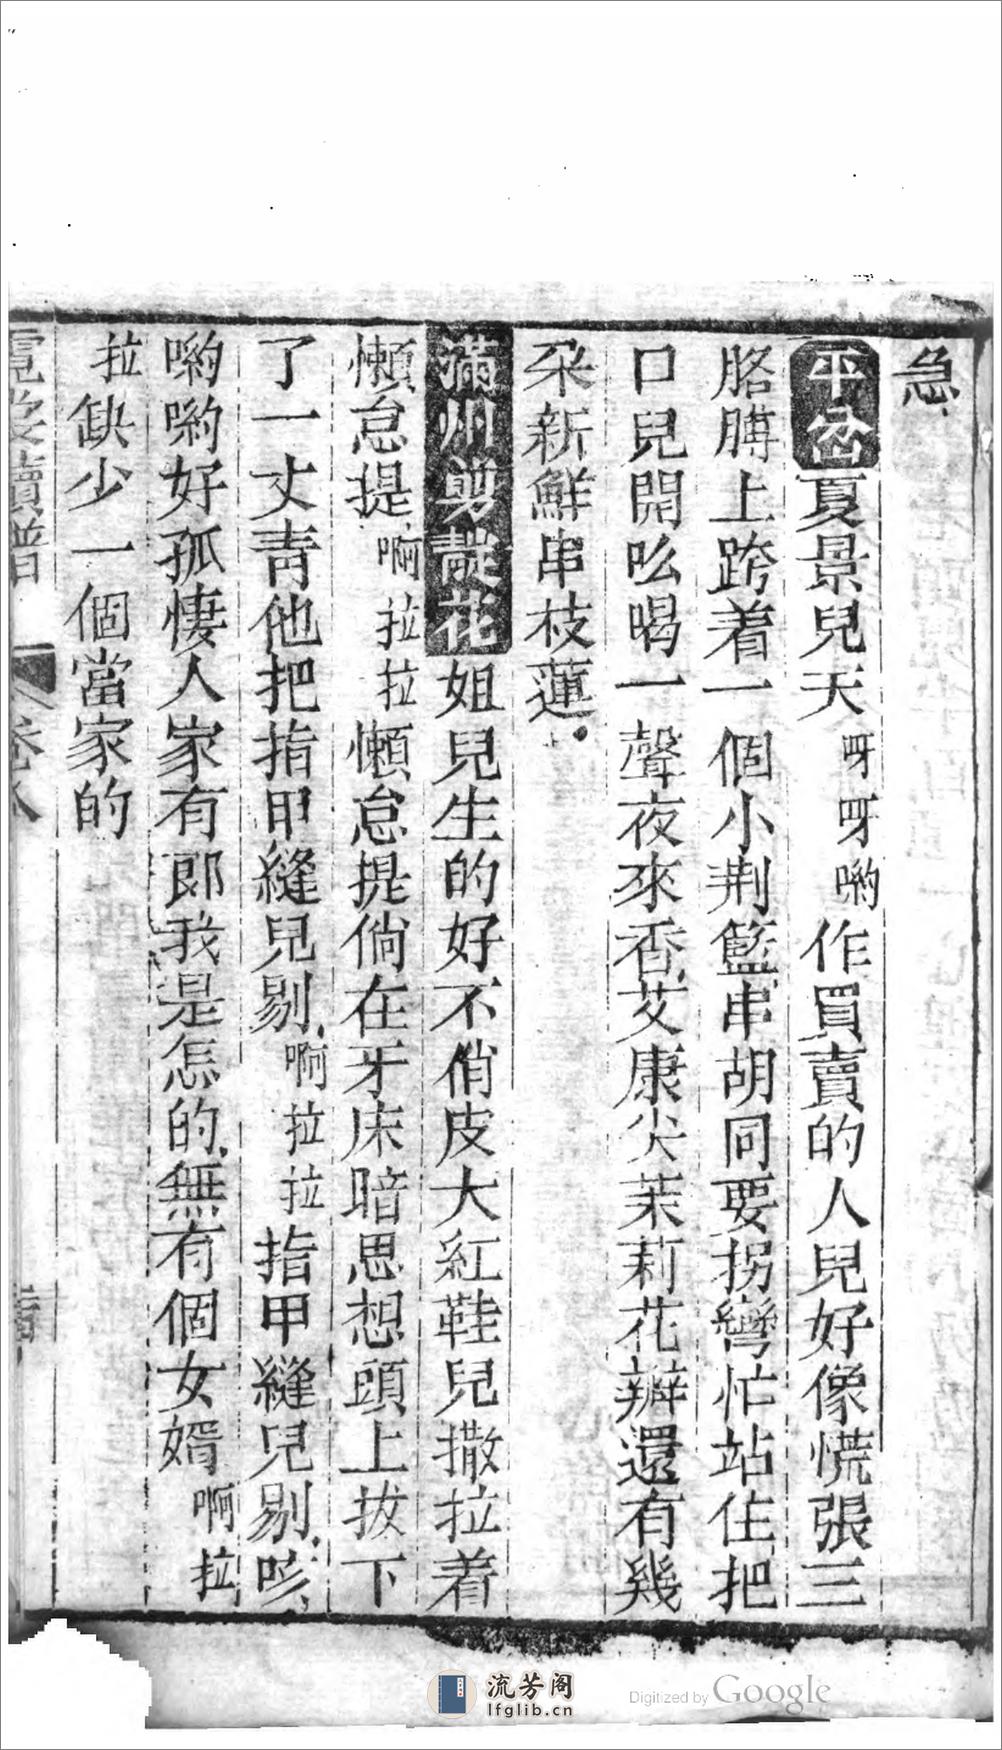 急
平岔夏景兒天呀呀喲作買賣的人兒好像慌張三
胳膊上跨着一個小荆籃串胡同要拐彎忙站住把
口兒開吆喝一聲夜來香艾康尖茉莉花瓣還有幾
朶新鮮串枝蓮
滿州剪靛花姐兒生的好不俏皮大紅鞋兒撒拉着
懶怠提啊拉拉懶怠提倘在牙床暗思想頭上拔下
了一丈青他把指甲縫兒剔啊拉拉指甲縫兒剔咳
喲喲好孤悽人家有郎我是怎的無有個女婿啊拉
拉缺少一個當家的
霓裳續譜
卷八
流芳阁
lfglib.cn
Digitized by Google